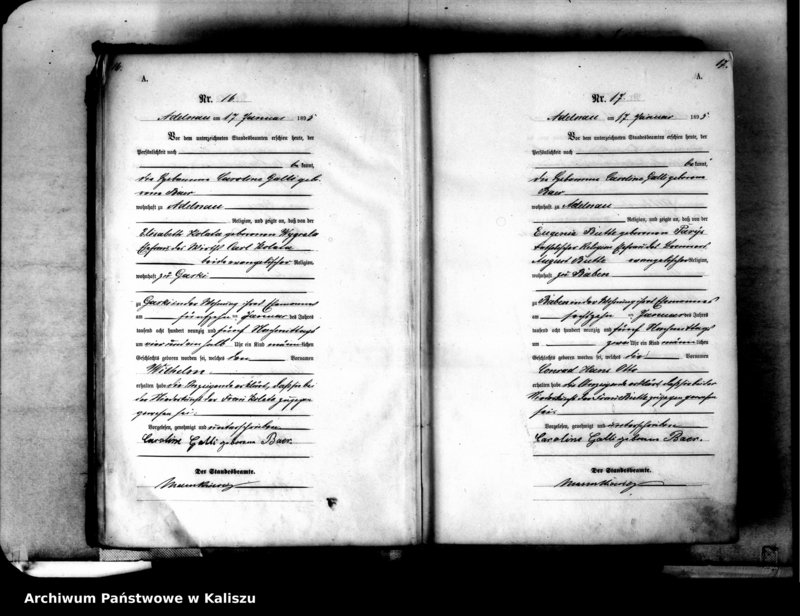 16.
A.
Nr. 16
Adelnau am 17 Januar 1895
Vor dem unterzeichneten Standesbeamten erschien heute, der
Persönlichkeit nach
bekannt,
die Hebamme Caroline Galli geb.
Baer
wohnhaft zu Adelnau
Religion, und zeigte an, daß von der
Elisabeth geborenen
Ehefrau des Wirth Carl
beide evangelischer Religion,
wohnhaft zu Garki
zu Garki in der Wohnung ihres Ehemannes
am fünfzehn Januar des Jahres
tausend acht hundert neunzig und fünf Nachmittags
um vier und ein halb Uhr ein Kind männlichen
Geschlechts geboren worden sei, welches den Vornamen
Wilhelm
erhalten habe die Anzeigende erklärt, daß sie bei
der Niederkunft der Frau zugegen
gewesen sei.
Vorgelesen, genehmigt und unterschrieben
Caroline Galli geboren Baer.
Der Standesbeamte.
17.
A.
Nr. 17.
Adelnau am 17 Januar 1895
Vor dem unterzeichneten Standesbeamten erschien heute, der
Persönlichkeit nach
bekannt,
die Hebamme Caroline Galli geboren
Baer
wohnhaft zu Adelnau
Religion, und zeigte an, daß von der
Eugenie geborenen
katholischer Religion Ehefrau des
August evangelischer Religion,
wohnhaft zu Baben
zu Baben in der Wohnung ihres Ehemannes
am sechzehn Januar des Jahres
tausend acht hundert neunzig und fünf Nachmittags
um zwei Uhr ein Kind männlichen
Geschlechts geboren worden sei, welches die Vornamen
Conrad Hans Otto
erhalten habe die Anzeigende erklärt, daß sie bei der
Niederkunft der Frau zugegen gewesen
sei.
Vorgelesen, genehmigt und unterschrieben
Caroline Galli geboren Baer.
Der Standesbeamte.
Archiwum Państwowe w Kaliszu